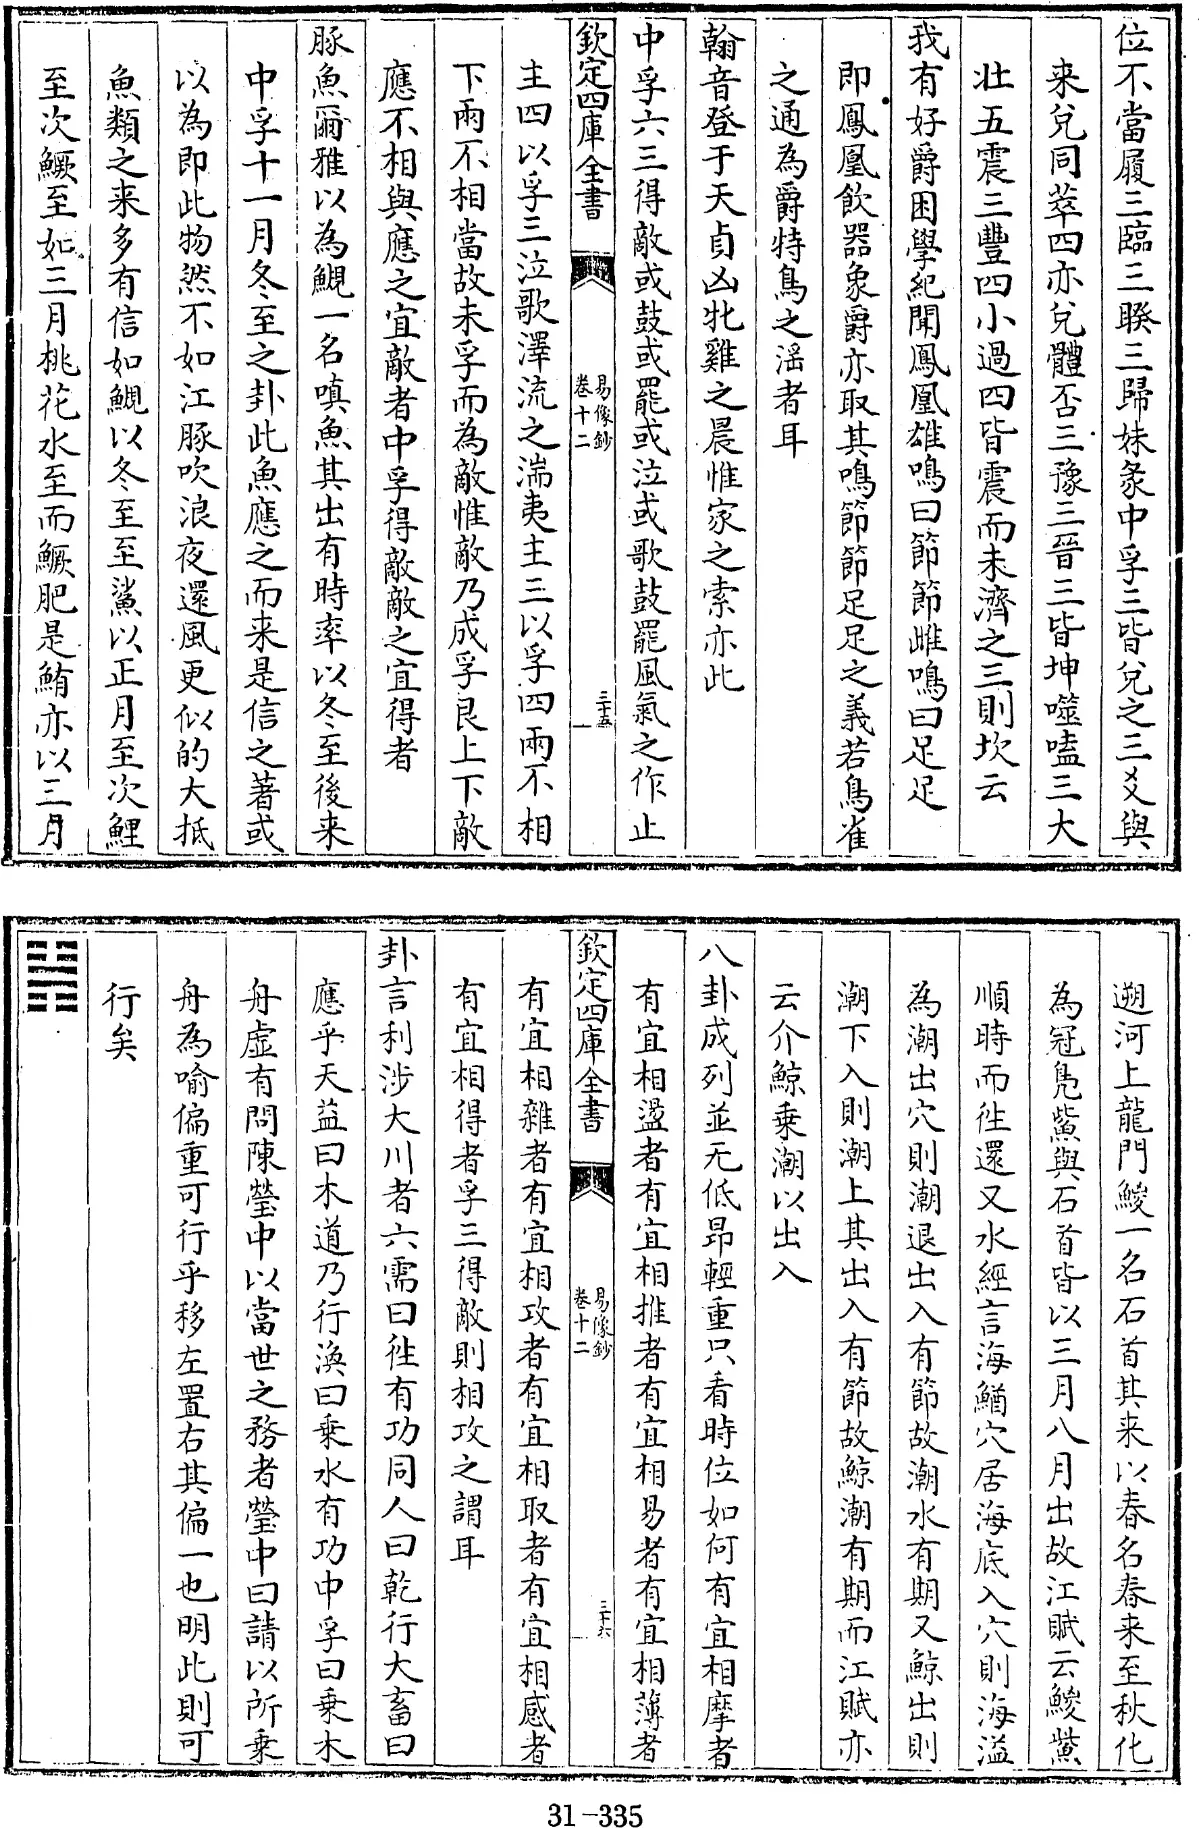 位不當履三臨三睽三歸妹彖中孚三皆兌之三爻與
来兌同萃四亦兌體否三豫三晉三皆坤噬嗑三大
壮五震三豐四小過四皆震而未濟之三則坎云
我有好爵困學紀聞鳳凰雄鳴曰節節雌鳴曰足足
即鳳凰飲器象爵亦取其鳴節節足足之義若鳥雀
之通為爵特鳥之淫者耳
翰音登于天貞凶牝雞之晨惟家之索亦此
中孚六三得敵或鼓或罷或泣或歌鼓罷風氣之作止
欽定四庫全書
易像鈔
卷十二
三十五
主四以孚三泣歌澤流之湍夷主三以孚四兩不相
下兩不相當故未孚而為敵惟敵乃成孚艮上下敵
應不相與應之宜敵者中孚得敵敵之宜得者
豚魚爾雅以為鯢一名嗔魚其出有時率以冬至後来
中孚十一月冬至之卦此魚應之而来是信之著或
以為即此物然不如江豚吹浪夜還風更似的大抵
魚類之来多有信如鯢以冬至至鯊以正月至次鯉
至次鱖至如三月桃花水至而鱖肥是鮪亦以三月
遡河上龍門鯼一名石首其来以春名春来至秋化
為冠鳧鮆與石首皆以三月八月出故江賦云鯼鮆
順時而徃還又水經言海鰌穴居海底入穴則海溢
為潮出穴則潮退出入有節故潮水有期又鯨出則
潮下入則潮上其出入有節故鯨潮有期而江賦亦
云介鯨乗潮以出入
八卦成列並无低昂輕重只看時位如何有宜相摩者
有宜相盪者有宜相推者有宜相易者有宜相薄者
欽定四庫全書
易像鈔
卷十二
三十六
有宜相雜者有宜相攻者有宜相取者有宜相感者
有宜相得者孚三得敵則相攻之謂耳
卦言利涉大川者六需曰徃有功同人曰乾行大畜曰
應乎天益曰木道乃行渙曰乗水有功中孚曰乗木
舟虛有問陳瑩中以當世之務者瑩中曰請以所乗
舟為喻偏重可行乎移左置右其偏一也明此則可
行矣
31-335